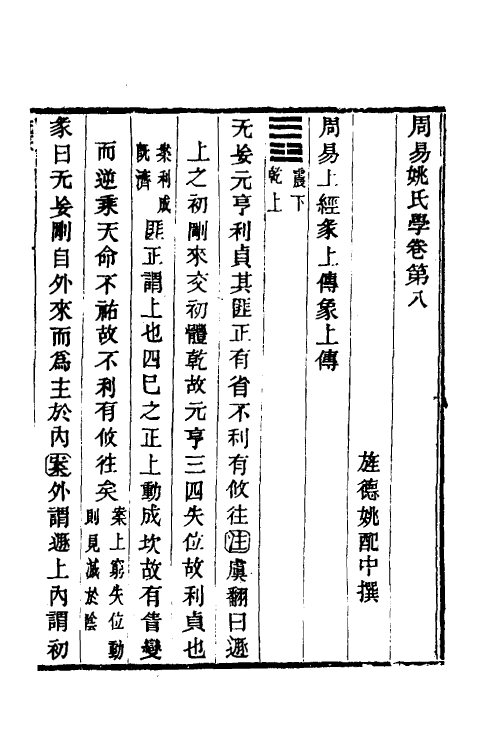 周易姚氏學卷第八
旌德姚配中撰
周易上經彖上傳象上傳
震下
乾上
无妄元亨利貞其匪正有眚不利有攸往注虞翻曰遯
上之初剛來交初體乾故元亨三四失位故利貞也
案利成
既濟
匪正謂上也四已之正上動成坎故有眚變
而逆乘天命不祐故不利有攸往矣
案上窮失位動
則見滅於陰
彖曰无妄剛自外來而爲主於內案外謂遯上內謂初